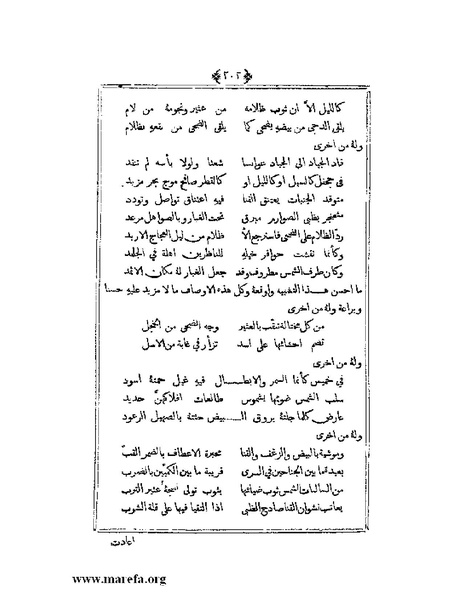 ﴿٢٠٢﴾
كالليل الاّ ان ثوب ظلامه من عثير ونجومه من لام
يلقى الدجى من بيضه بضحى كما يلقى الضحى من نقعه بظلام
وله من اخرى
قاد الجياد الى الجياد عوابسا شعثا ولولا بأسه لم تنقد
في جحفل كالسيل او كالليل او كالقطر صافح موج بحر مزبد
متوقد الجنبات يعتنق القنا فيه اعتناق تواصل وتودد
مثعنجر بظبى الصوارم مبرق تحت الغبار وبالصواهل مرعد
ردّ الظلام على الضحى فاسترجع الأ ظلام من ليل العجاج الاربد
وكأنما نقشت حوافر خيله للناظرين اهلة في الجلمد
وكأن طرف الشمس مطروف وقد جعل الغبار له مكان الاثمد
ما احسن هذا التشبيه واوقعه وكل هذه الاوصاف ما لا مزيد عليه حسنا
وبراعة وله من اخرى
من كل مختالة تنقب بالعثير وجه الضحى من الخجل
تضم احشائها على اسد تزأر في غابة من الاسل
وله من اخرى
في خميس كأنما السمر والابطال فيه غيل حمته اسود
سلب الشمس ضوئها بشموس طالعات افلاكهنّ حديد
عارض كلما جلته بروق البيض حثته بالصهيل الرعود
وله من اخرى
وموشية بالبيض والزغف والقنا محبرة الاعطاف بالضمر القبّ
بعيدة ما بين الجناحين في السرى قريبة ما بين الكميّين بالضرب
من السالبات الشمس ثوب ضيائها بثوب تولى نسجهُ عثير الترب
يعاتب نشوان القنا صاديح الظبى اذا التقيا فيها على قلة الشرب
اعادت
www.marefa.org